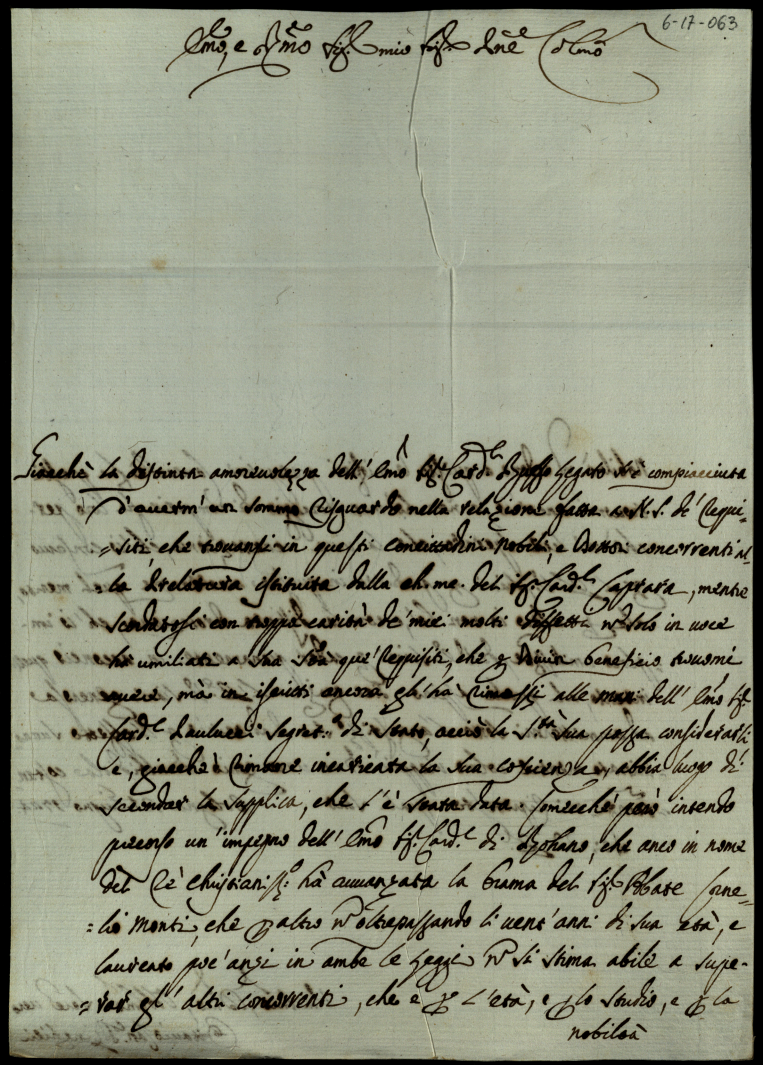 6-17-063
Illmo, e Rmo Sig.r mio Sig.r Pne Colmo
Giacchè la distinta amorevolezza dell' Emo Sig.r Card.l Legato si è compiacciuta
d'avermi un sommo risguardo nella relazione fatta a N. S. de' requi-
=siti, che trovansi in questi concittadini nobili, e Dottori concorrenti al=
=la Prelatura istituita dalla ch. me. del Sig.r Card.l Caprara, mentre
scordatosi con troppa carità de' miei molti diffetti nō solo in voce
hà umiliati a Sua Stà que' requisiti, che ꝑ Divin beneficio trovomi
avere, mà in iscritti ancora gl'hà rimessi alle mani dell' Emo Sig.r
Card.l Paulucci Segret.o di Stato, acciò la S.tà Sua possa considerarli
e, giacchè rimane incaricata la sua coscienza, abbia luogo di
secondar la supplica, che l'è stata data. Comecchè però intendo
precorso un'impegno dell' Emo Sig.r Card.l di Rohano, che anco in nome
del Rè Christianiss.o hà avvanzata la brama del Sig.r Abate Corne-
=lio Monti, che ꝑ altro nō oltrepassando li vent'anni di sua età, e
laureato poc'anzi in ambe le Leggi nō si stima abile a supe-
=rar gl'altri concorrenti, che e ꝑ l'età, e ꝑ lo studio, e ꝑ la
nobiltà